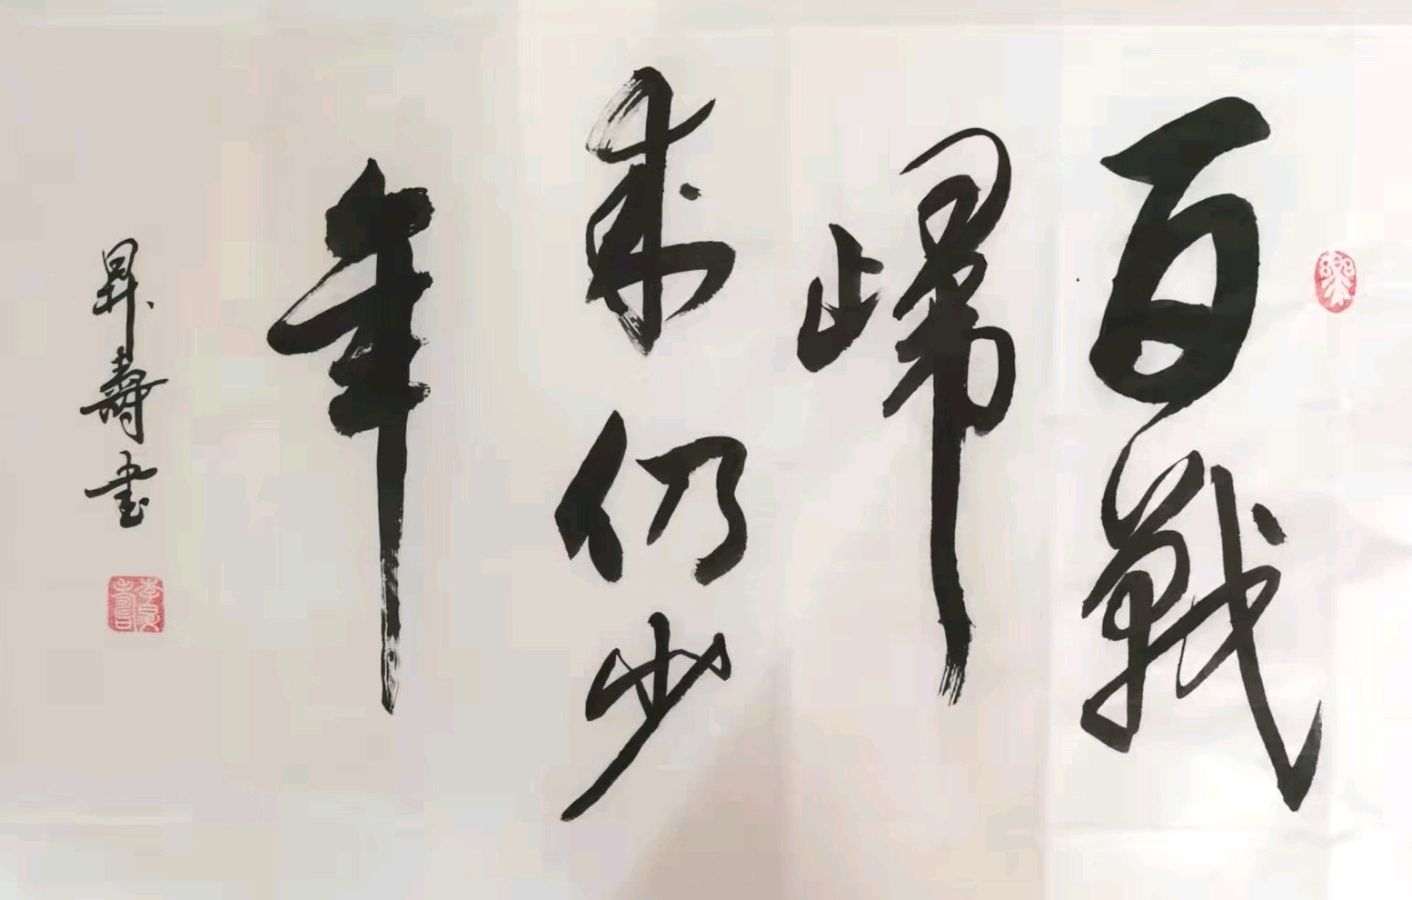 百戰
歸
来仍少
年
昇壽書